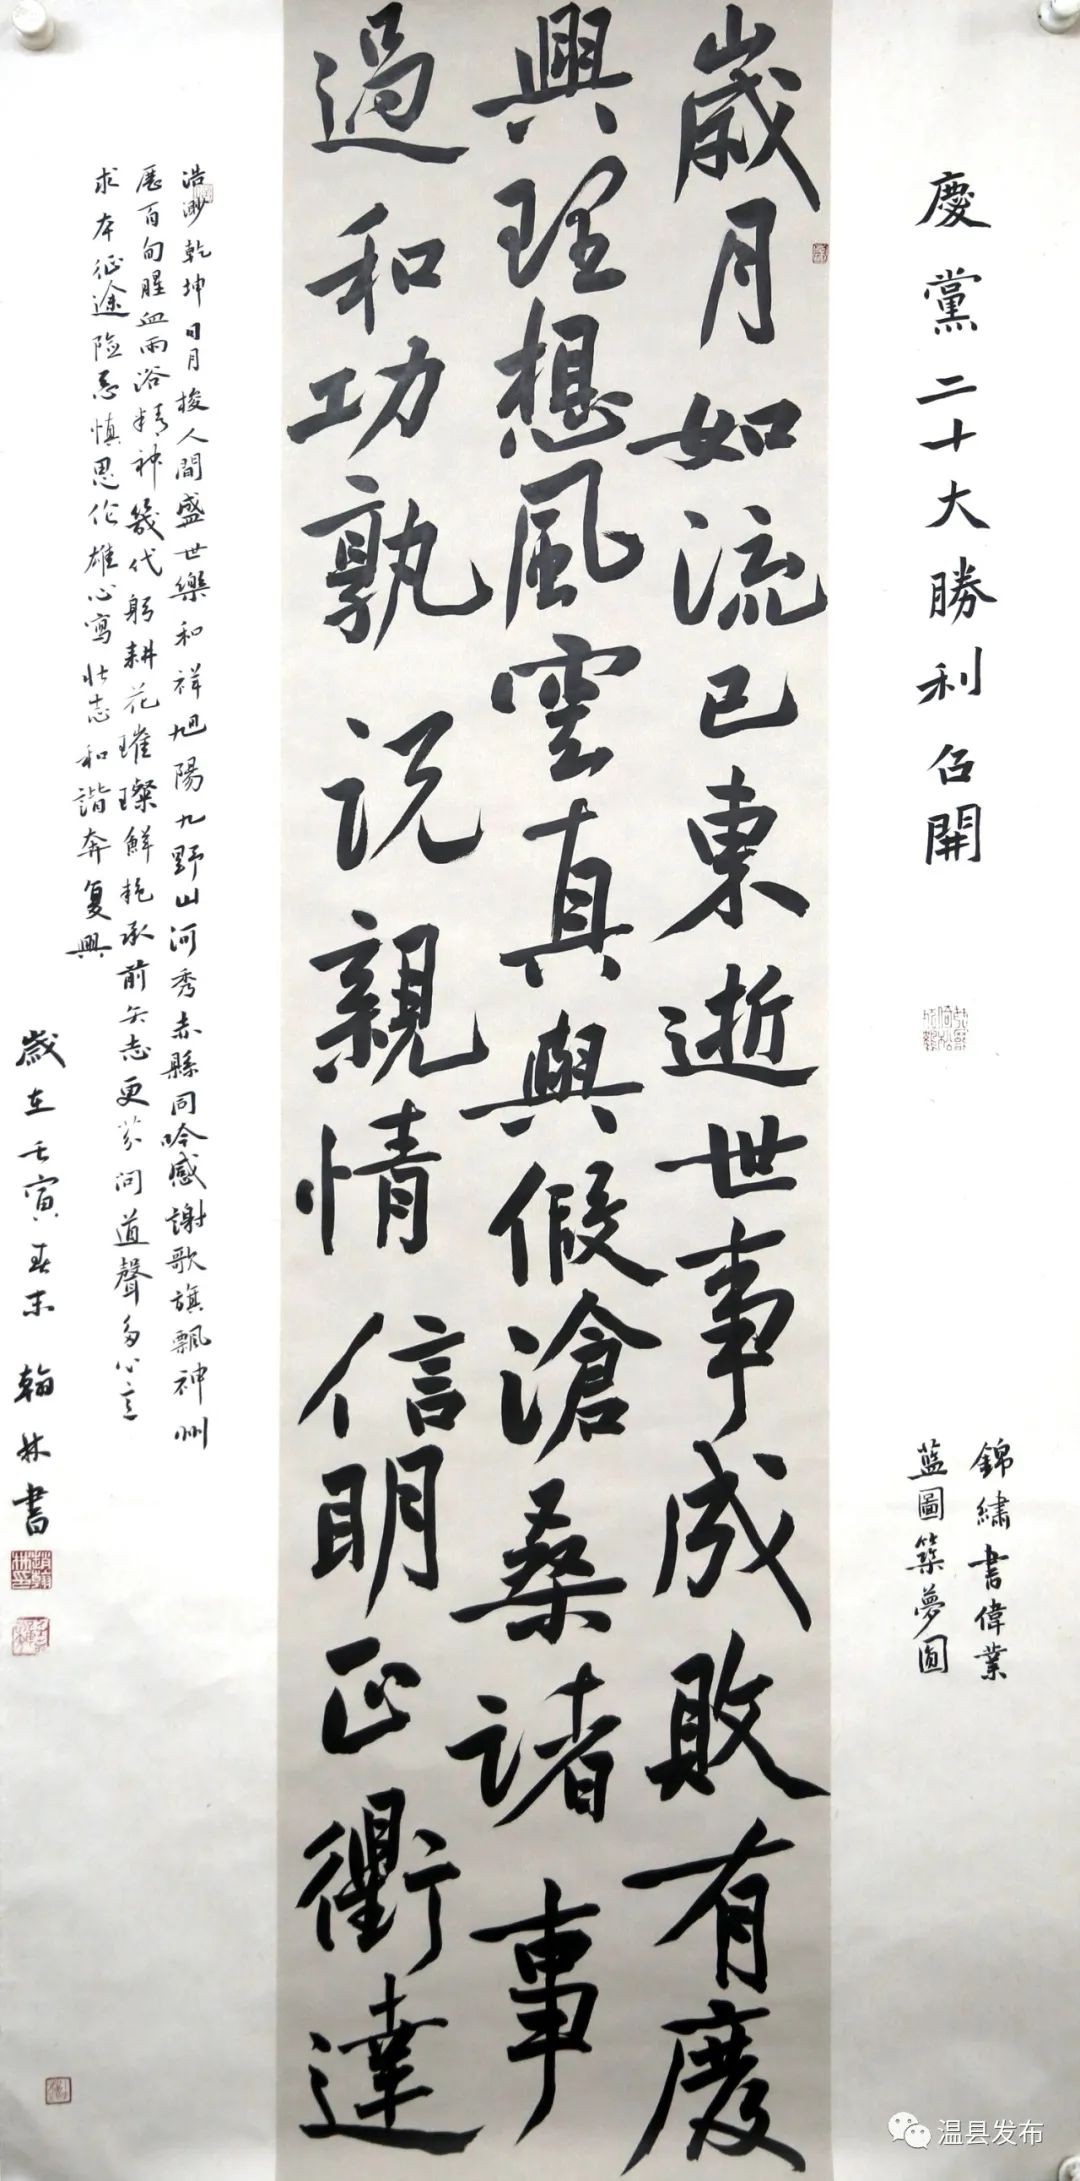 慶黨二十大勝利召開
錦繡書偉業
藍圖築夢圓
歲月如流已東逝世事成敗有廢
興理想風雲真與假滄桑諸事
過和功孰说親情信明正衢達
浩渺乾坤日月梭人間盛世樂和祥旭陽九野山河秀赤縣同吟感謝歌旗飄神州
歷百旬腥血雨浴精神幾代躬耕花璀璨鮮艳承前矢志更 问道聲多心言
求本征途险恶慎思伦雄心寫壮志和諧奔复興
歲在壬寅春末翰林書
温县发布